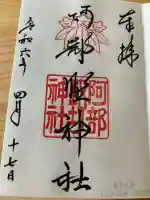 奉拝
阿部野神社
阿部
野
神社
令和六年
四月十七日